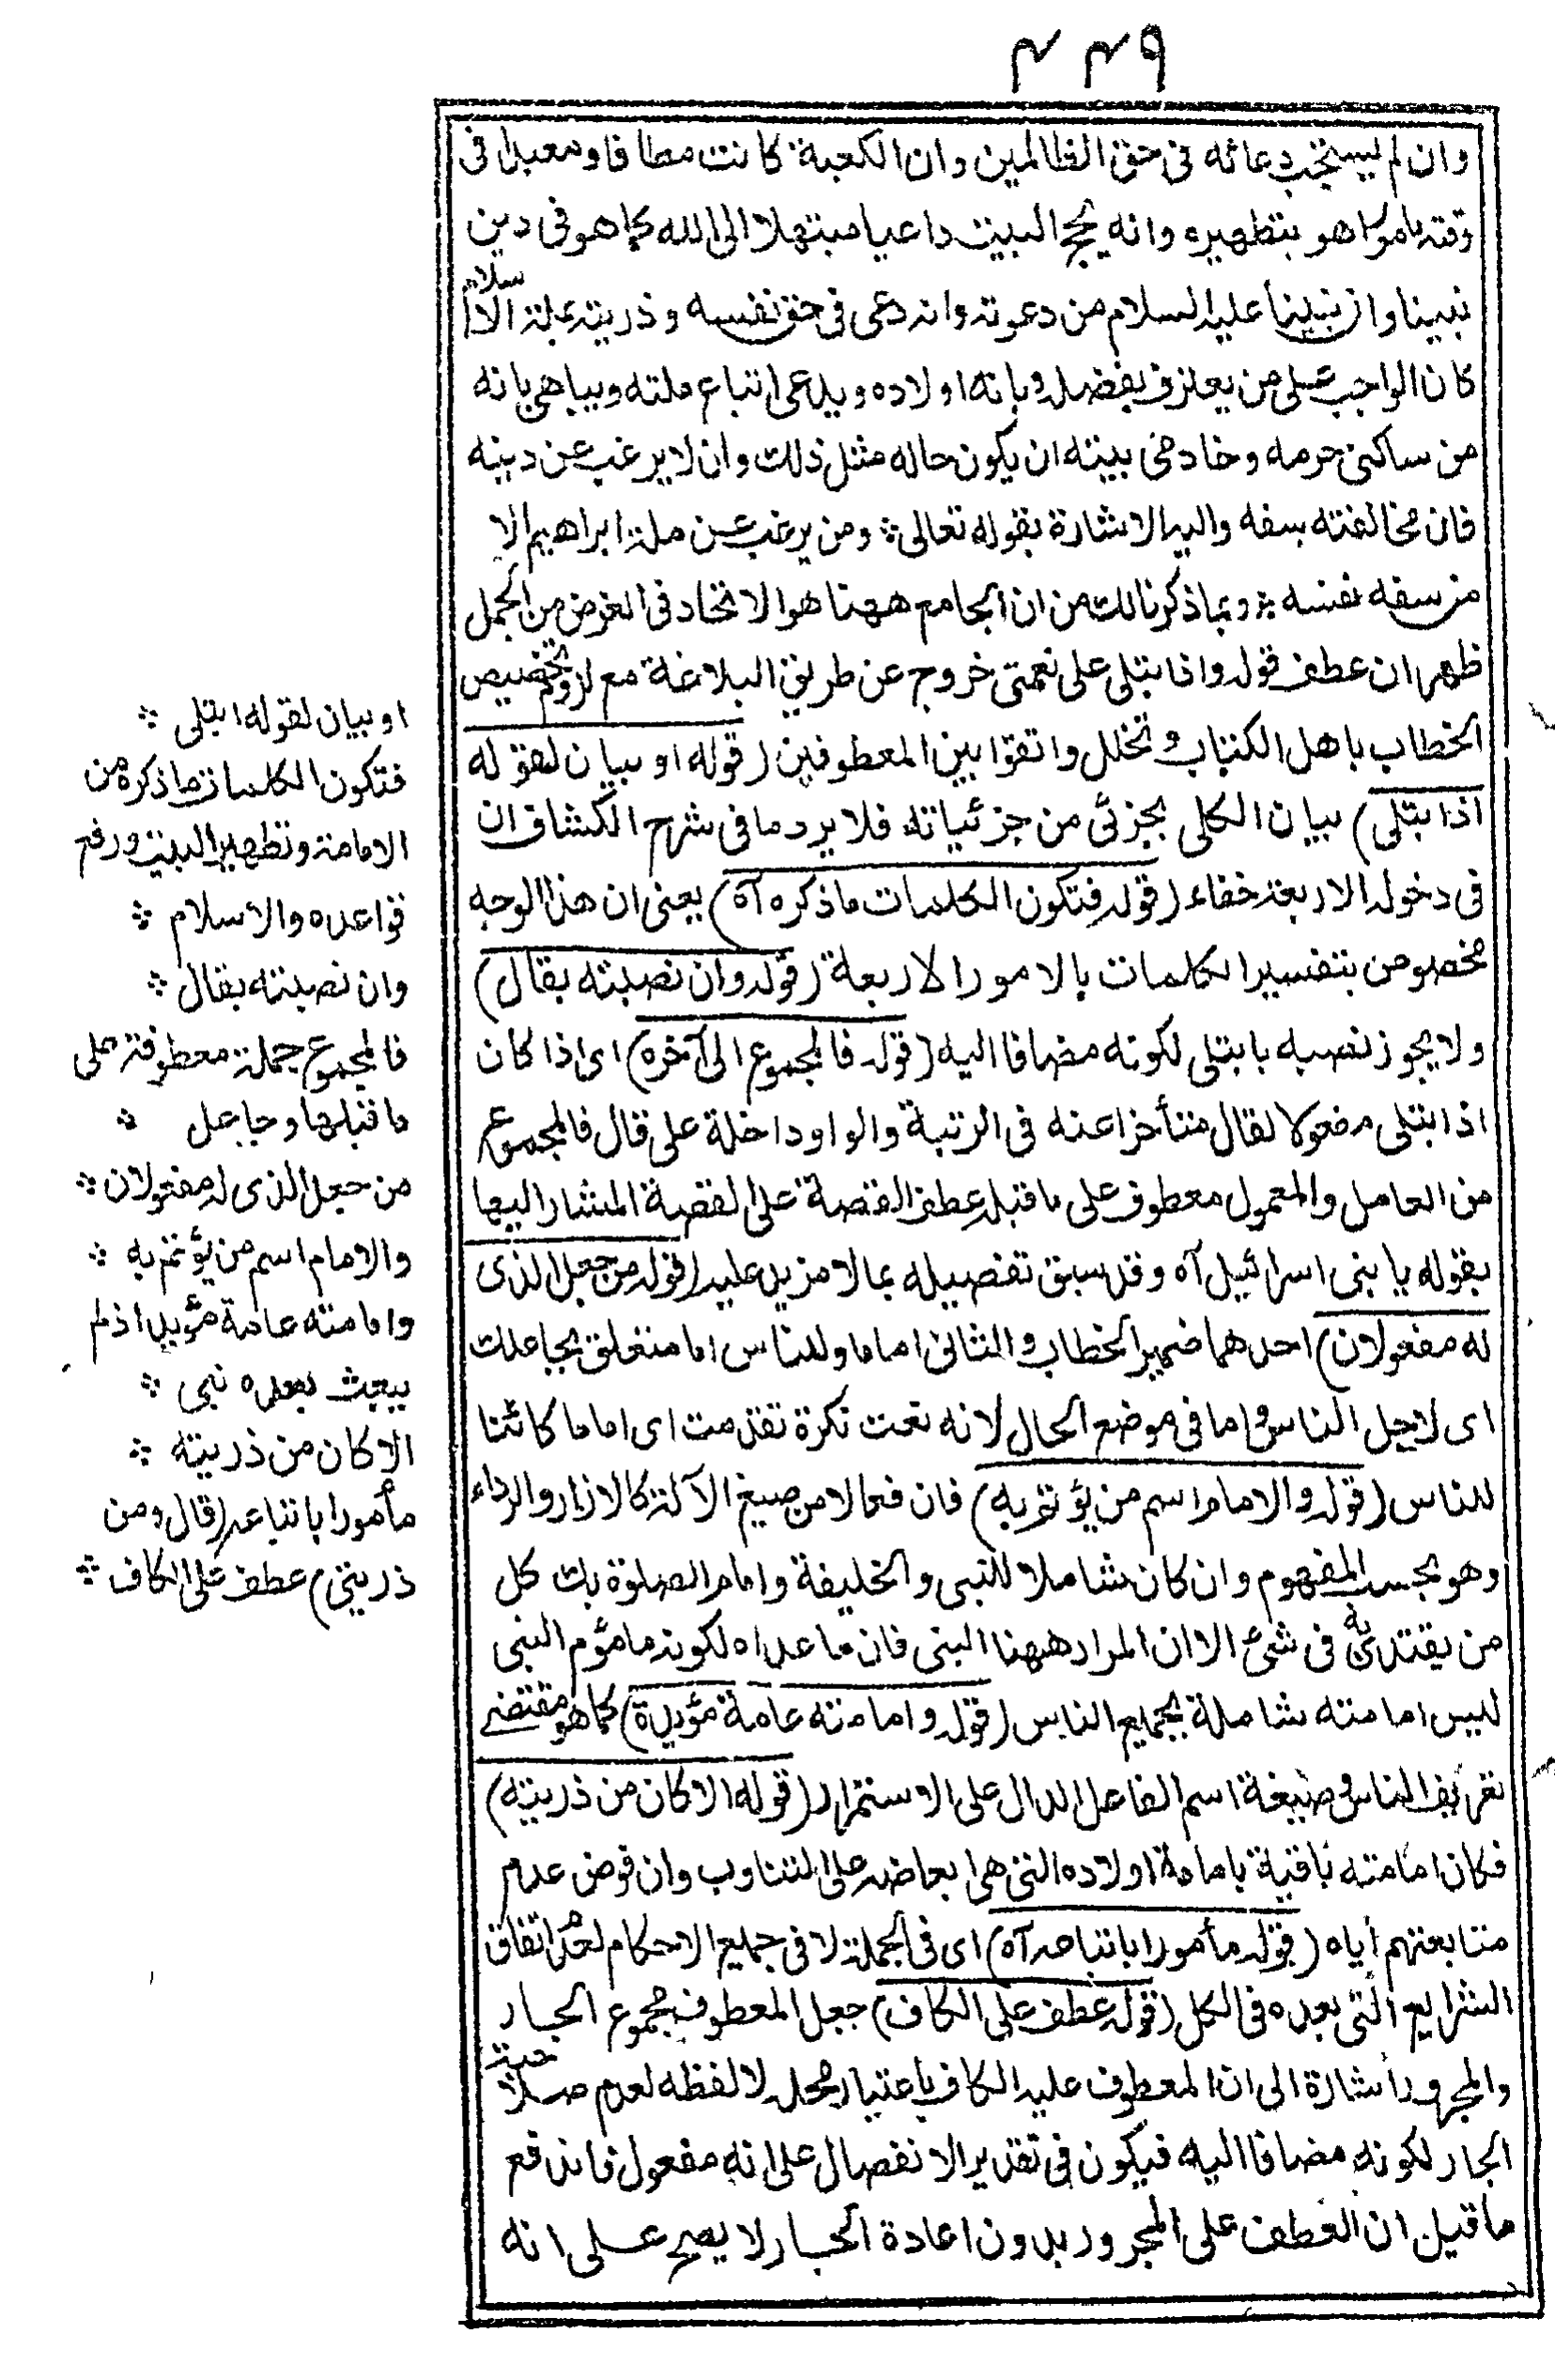 ٤٤٩
وان لم يستجب دعائه فى حق الظالمين وان الكعبة كانت مطافا ومعبدا فى
وقته مامورا هو بتطهيره وانه يحج البيت داعيا مبتهلا الى الله كما هو فى دين
نبينا وان نبينا عليه السلام من دعوته وانه دعى فى حق نفسه وذريته بملة الاسلام
كان الواجب على من يعترف بفضله وبانه اولاده ويدعى اتباع ملته ويباهى بانه
من ساكنى حرمه وخادمى بيته ان يكون حاله مثل ذلك وان لا يرغب عن دينه
فان مخالفته سفه واليه الاشارة بقوله تعالى ومن يرغب عن ملة ابراهيم الا
من سفه نفسه وبما ذكرنا لك من ان الجامع ههنا هو الاتحاد فى الغرض من الجمل
ظهر ان عطف قوله واذا بتلى على نعمتى خروج عن طريق البلاغة مع لزوم تخصيص
الخطاب باهل الكتاب وتخلل واتقوا بين المعطوفين (قوله او بيان لقوله
اذا بتلى) بيان الكلى بجزئى من جزئياته فلا يرد ما فى شرح الكشاف ان
فى دخول الاربعة خفاء (قوله فتكون الكلمات ما ذكره آه) يعنى ان هذا الوجه
مخصوص بتفسير الكلمات بالامور الاربعة (قوله وان نصبته بقال)
ولا يجوز نصبه بابتلى لكونه مضافا اليه (قوله فالمجموع الى آخره) اى اذا كان
اذا بتلى مفعولا لقال متأخرا عنه فى الرتبة والواو داخلة على قال فالمجموع
من العامل والمعمول معطوف على ما قبله عطف القصة على القصة المشار اليها
بقوله يا بنى اسرائيل آه وقد سبق تفصيله بما لا مزيد عليه (قوله من جعل الذى
له مفعولان) احدهما ضمير الخطاب والثانى اماما وللناس اما متعلق بجاعلك
اى لاجل الناس واما فى موضع الحال لانه نعت نكرة تقدمت اى اماما كائنا
للناس (قوله والامام اسم من يؤتم به) فان فعالا من صيغ الآلة كالازار والرداء
وهو بحسب المفهوم وان كان شاملا للنبى والخليفة وامام الصلوة بل كل
من يقتدى به فى شئ الا ان المراد ههنا النبى فان ما عداه لكونه ماموم النبى
ليس امامته شاملة بجميع الناس (قوله وامامته عامة مؤبدة) كما هو مقتضى
تعريف الناس وصيغة اسم الفاعل الدال على الاستمرار (قوله الا كان من ذريته)
فكان امامته باقية بامامة اولاده التى هى ابعاضه على التناوب وان فرض عدم
متابعتهم اياه (قوله مأمورا باتباعه آه) اى فى الجملة لا فى جميع الاحكام لعدم اتفاق
الشرايع التى بعده فى الكل (قوله عطف على الكاف) جعل المعطوف مجموع الجار
والمجرور اشارة الى ان المعطوف عليه الكاف باعتبار محله لا لفظه لعدم صلاحية
الجار لكونه مضافا اليه فيكون فى تقدير الانفصال على انه مفعول فاندفع
ما قيل ان العطف على المجرور بدون اعادة الجار لا يصح على انه
او بيان لقوله ابتلى
فتكون الكلمات ما ذكره من
الامامة وتطهير البيت ورفع
قواعده والاسلام
وان نصبته بقال
فالمجموع جملة معطوفة على
ما قبلها وجاعل
من جعل الذى له مفعولان
والامام اسم من يؤتم به
وامامته عامة مؤبدة اذ لم
يبعث بعده نبى
الا كان من ذريته
مأمورا باتباعه (قال ومن
ذريتى) عطف على الكاف